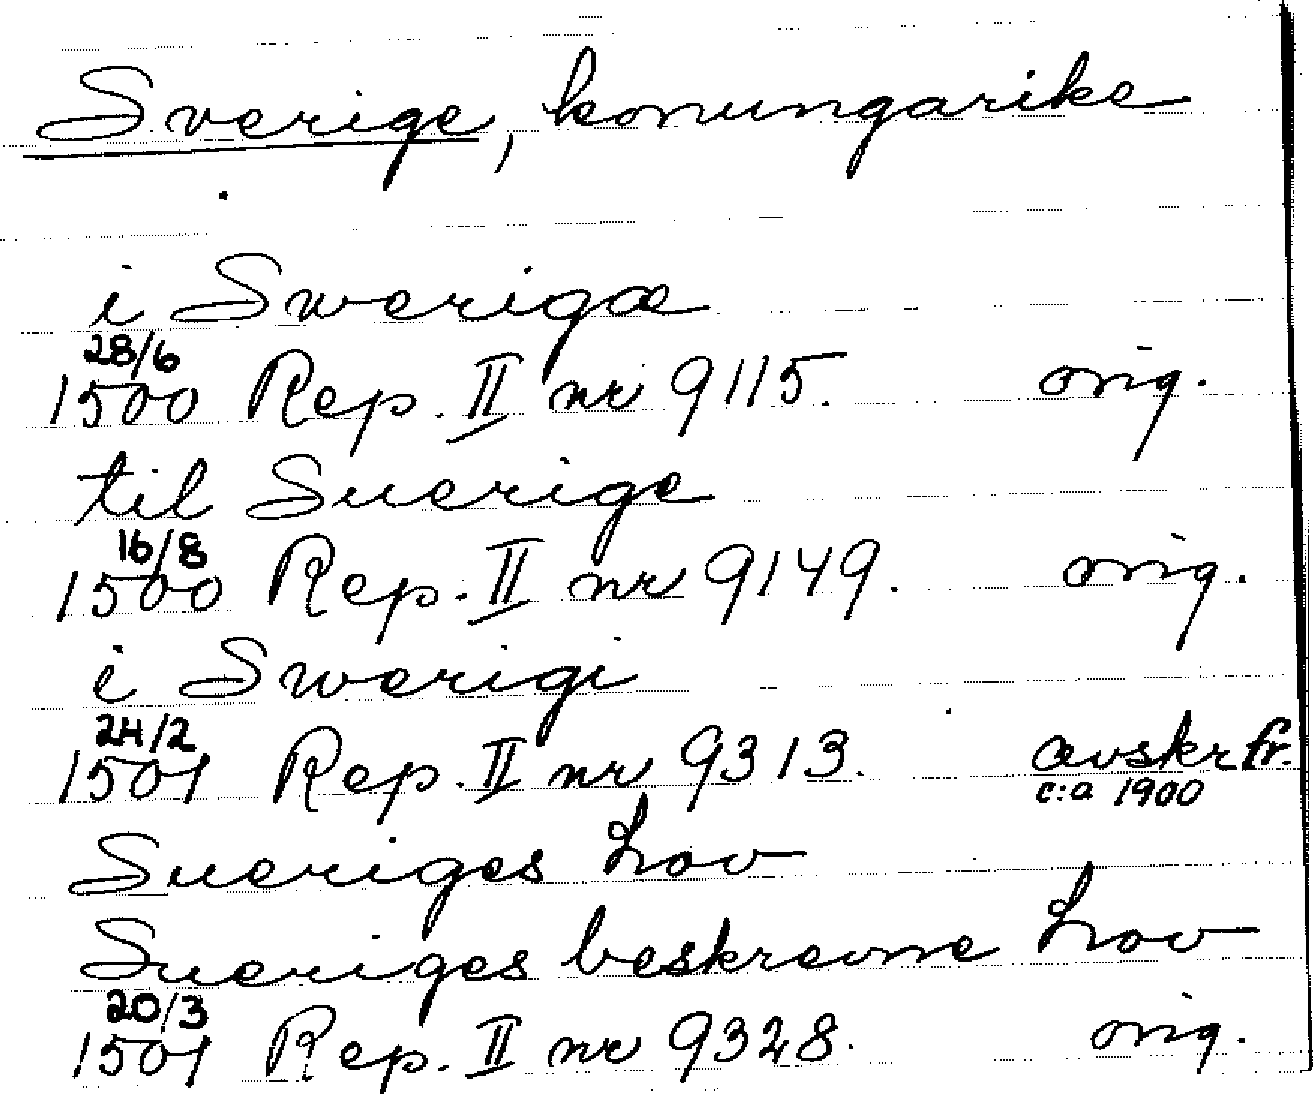 Sverige, konungarike
i Swerigæ
28/6
1500 Rep. II nr 9115. orig.
til Suerige
16/8
1500 Rep. II nr 9149. orig.
i Swerigi
24/2
1501 Rep. II nr 9313. avskr fr.
c:a 1900
Sueriges Low
Sueriges beskrevne Low
20/3
1501 Rep. II nr 9328. orig.